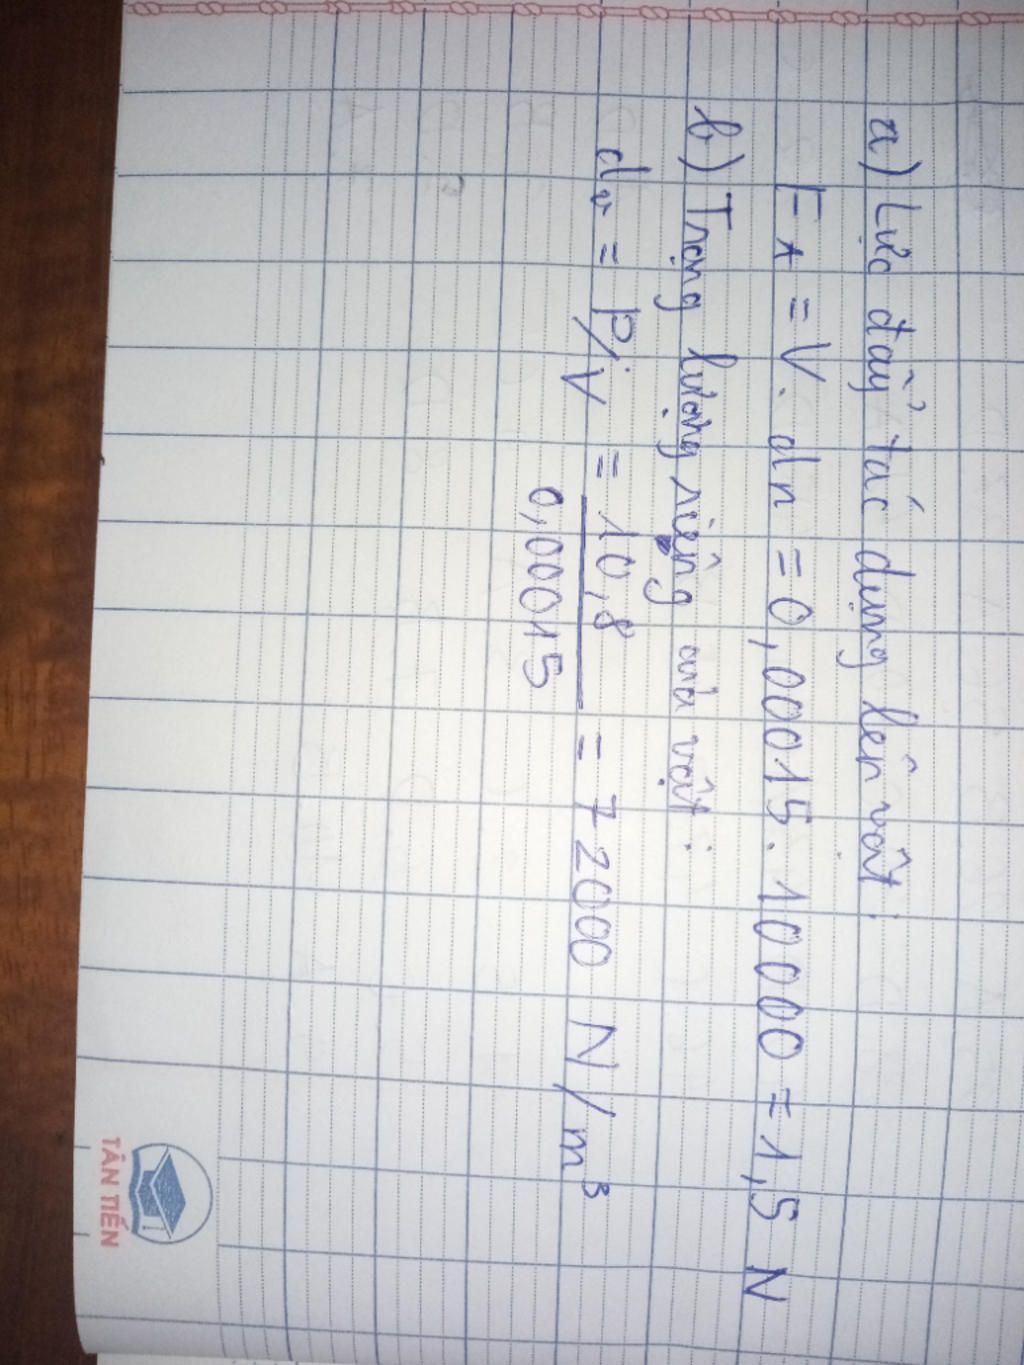 a) Lực đẩy tác dụng lên vật:
FA = V. dn = 0,00015. 10000 = 1,5 N
b) Trọng lượng riêng của vật:
dv = P/V = 10,8 / 0,00015 = 72000 N/m³
TÂN TIẾN